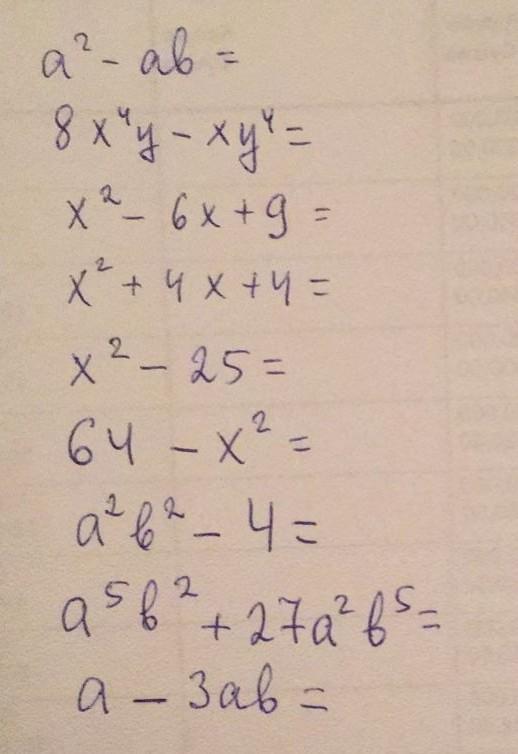 a² - ab =
8x⁴y - xy⁴ =
x² - 6x + 9 =
x² + 4x + 4 =
x² - 25 =
64 - x² =
a²b² - 4 =
a⁵b² + 27a²b⁵ =
a - 3ab =